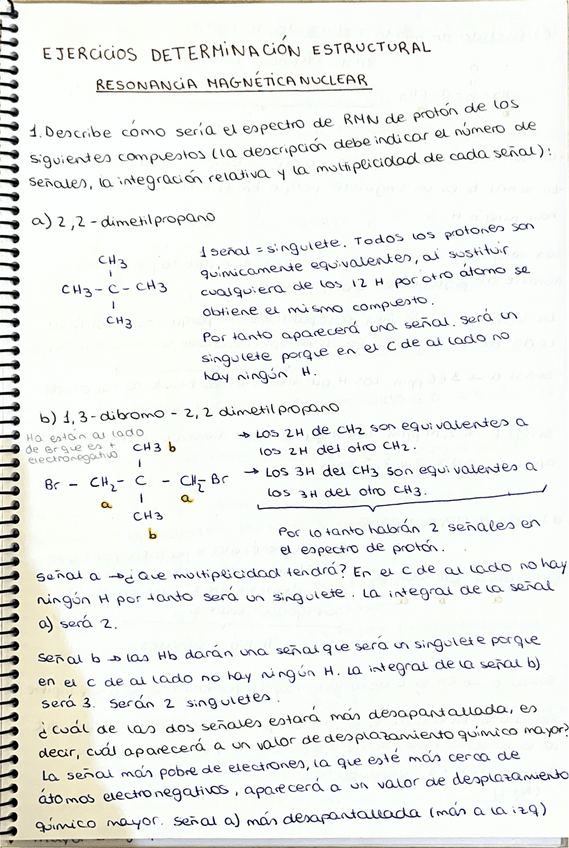 EJERCICIOS DETERMINACIÓN ESTRUCTURAL
RESONANCIA MAGNÉTICA NUCLEAR
1. Describe cómo sería el espectro de RMN de protón de los
siguientes compuestos (la descripción debe indicar el número de
señales, la integración relativa y la multiplicidad de cada señal):
a) 2,2-dimetilpropano
CH3
CH3-C-CH3
CH3
1 señal = singulete. Todos los protones son
químicamente equivalentes, al sustituir
cualquiera de los 12 H por otro átomo se
obtiene el mismo compuesto.
Por tanto aparecerá una señal. Será un
singulete porque en el C de al lado no
hay ningún H.
b) 1,3-dibromo-2,2 dimetilpropano
Ha están al lado
de Br que es +
electronegativo
CH3 b
Br - CH2 - C - CH2 - Br
a a
CH3
b
→ Los 2H de CH2 son equivalentes a
los 2H del otro CH2.
→ Los 3H del CH3 son equivalentes a
los 3H del otro CH3.
Por lo tanto habrán 2 señales en
el espectro de protón.
Señal a → ¿Que multiplicidad tendrá? En el C de al lado no hay
ningún H por tanto será un singulete. La integral de la señal
a) será 2.
Señal b → las Hb darán una señal que será un singulete porque
en el C de al lado no hay ningún H. La integral de la señal b)
será 3. Serán 2 singuletes.
¿cuál de las dos señales estará más desapantallada, es
decir, cuál aparecerá a un valor de desplazamiento químico mayor?
La señal más pobre de electrones, la que esté más cerca de
átomos electronegativos, aparecerá a un valor de desplazamiento
químico mayor. Señal a) más desapantallada (más a la izq)